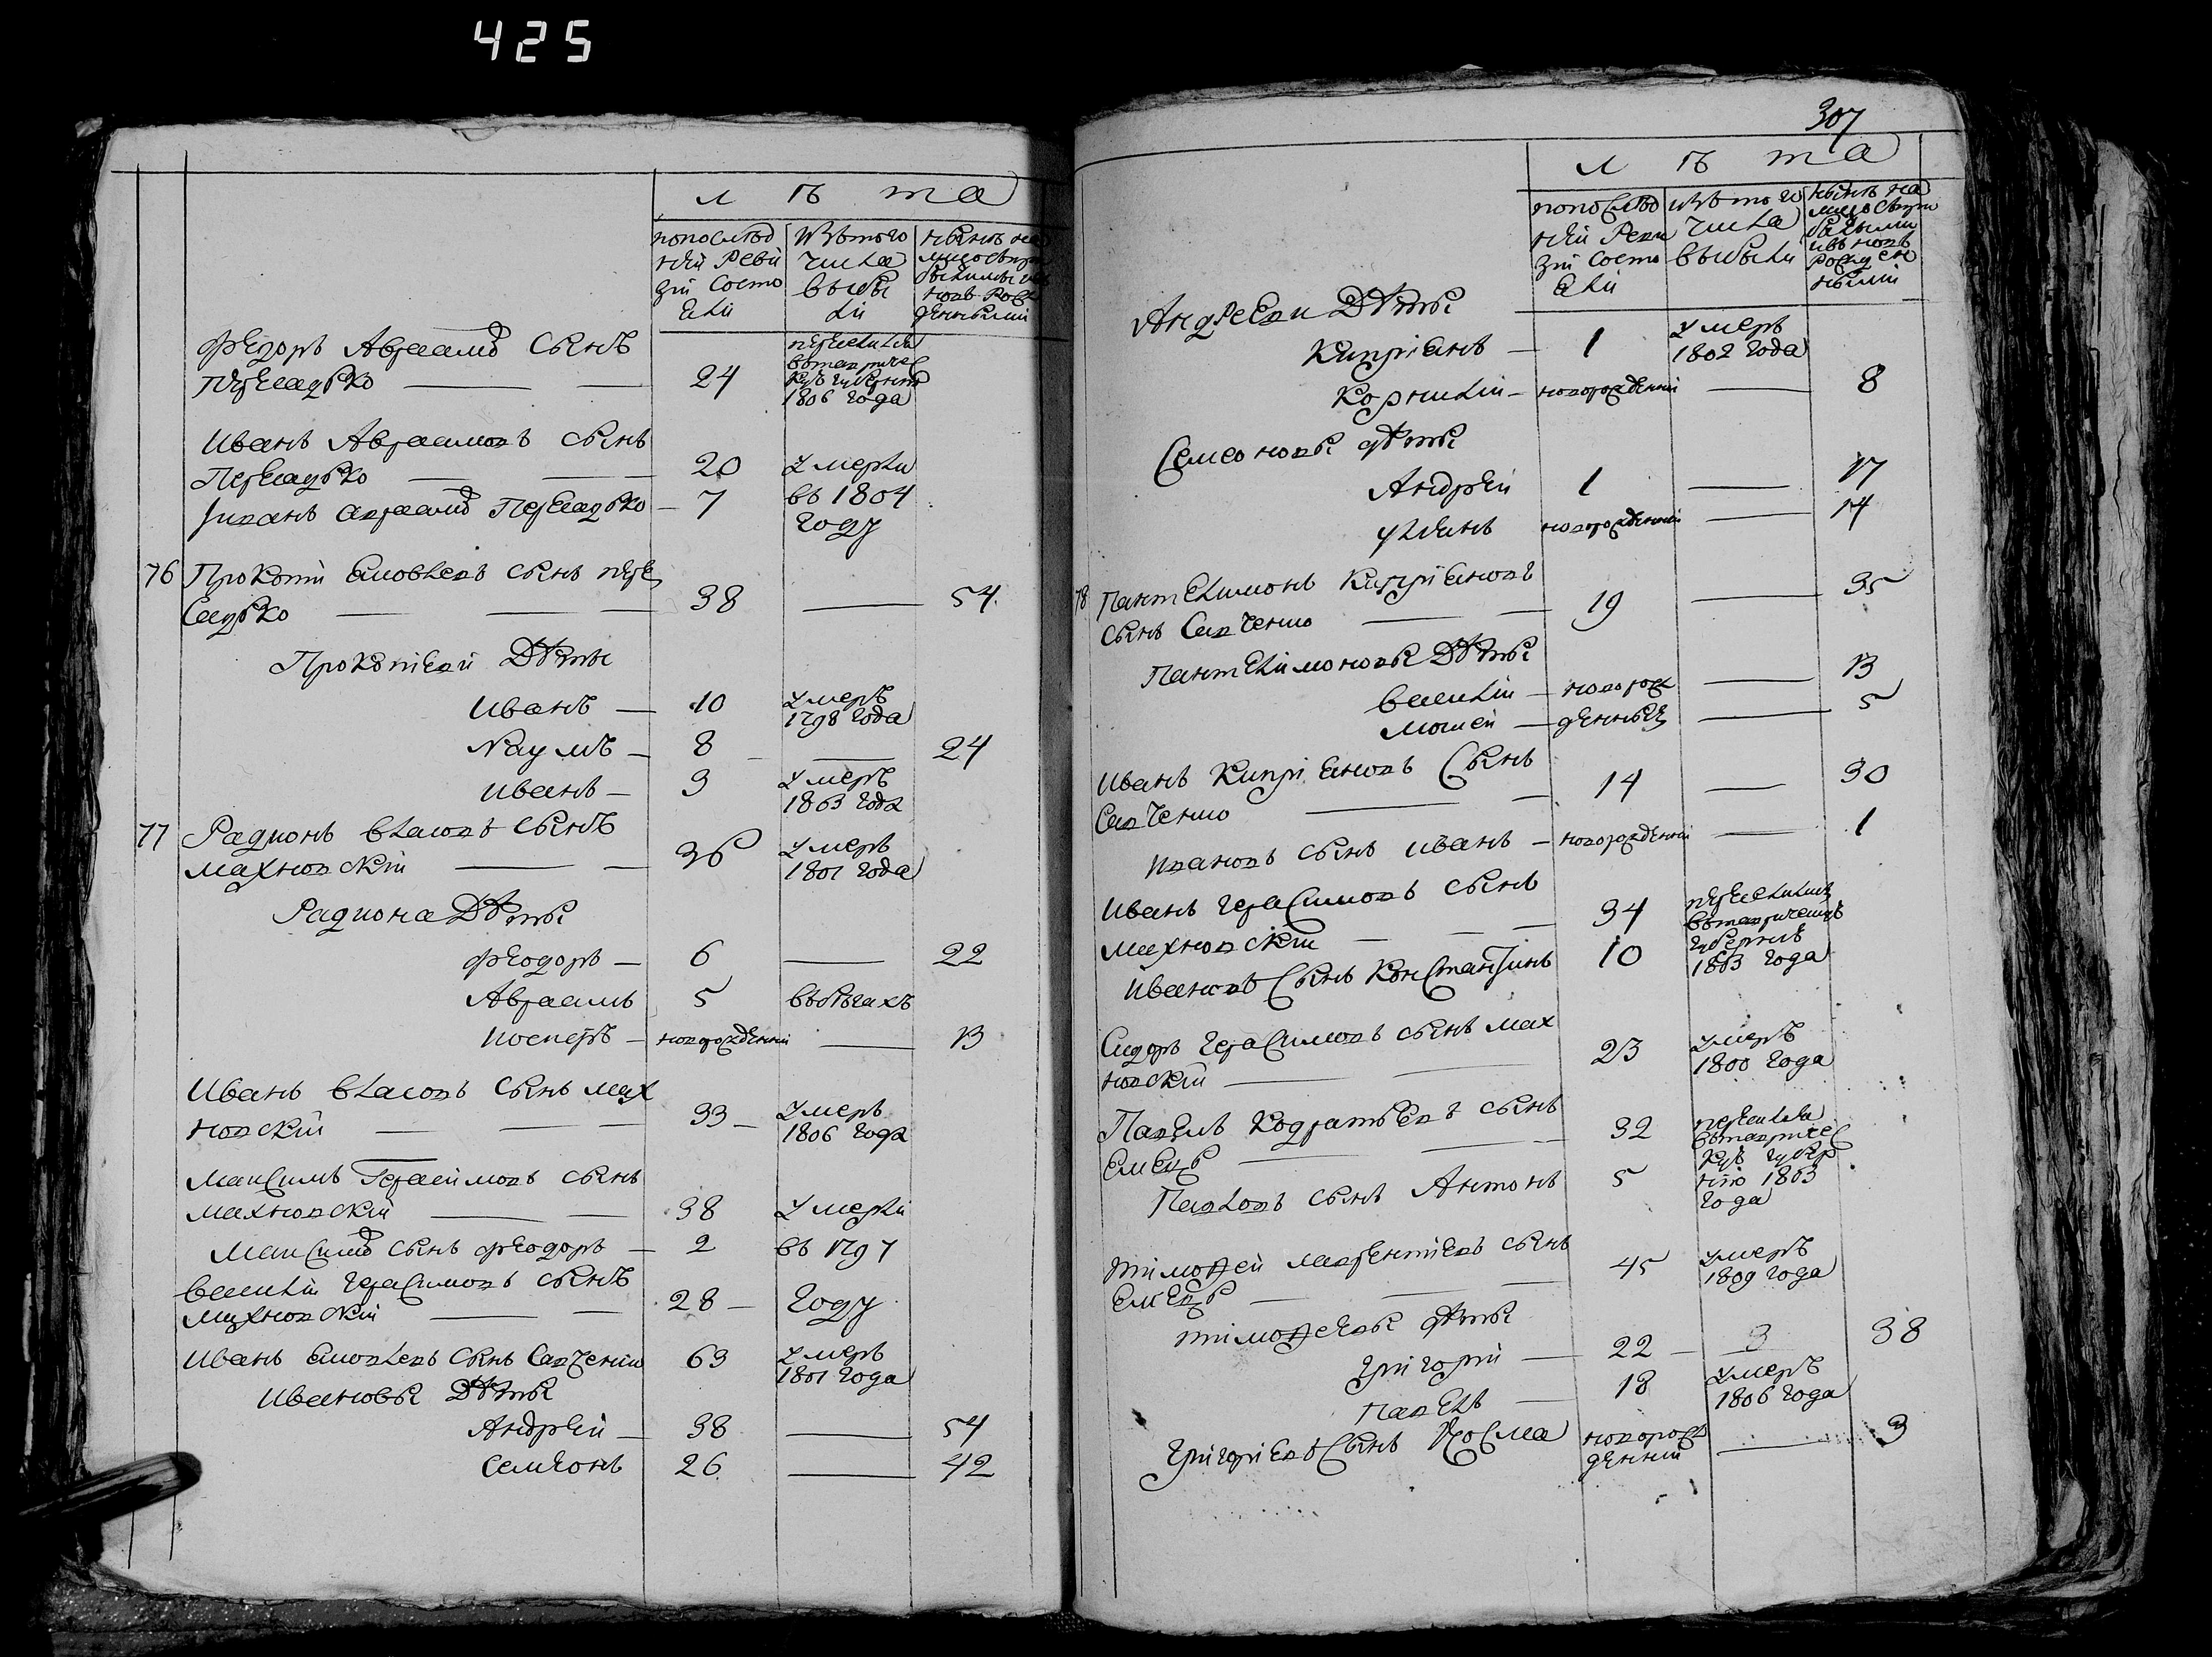 425
лѣта
пополѣд
ней Реви
зіи Состо
яли
изъ того
числа
выбы
ли
нынѣ на
лицо съ
ново рож
денными
Федоръ Авраамо сынъ
Пересадько — 24
переселил
въ тавричес
кую губернию
1806 года
Иванъ Авраамовъ сынъ
Пересадько — 20 умерли
Иванъ авраамо Пересадько — 7 въ 1804
году
76 Прокопій Яковлевъ сынъ пере
садько — 38 — 54
Прокопіевы Дѣты
Иванъ — 10 умеръ
1798 года
Наумъ — 8 — 24
иванъ — 3 умеръ
1803 года
77 Радионъ власовъ сынъ
махновскій — 36 умеръ
1801 года
Радиона Дѣты
феодоръ — 6 — 22
Авраамъ 5 въ бѣгахъ
новорожденній — 13
Иванъ власовъ сынъ мах
новскій — 33 — умеръ
1806 года
Максимъ Герасимовъ сынъ
махновскій — 38 умерли
Максимо сынъ феодоръ — 2 въ 1797
василій герасимовъ сынъ
махновскій — 28 — году
Иванъ Яковлевъ сынъ Савченко 63 умеръ
1801 года
Ивановы Дѣты
Андрей — 38 — 54
семіонъ 26 — 42
307
лѣта
пополѣд
ней Реви
зіи Состо
яли
изъ того
числа
выбыли
нынѣ на
лицо
Андреевы Дѣты
Кипріянъ — 1 умеръ
1802 года
Корнилій — новорожденній — 8
Семеоновы дѣты
Андрей 1 — 17
улянъ новорожденній — 14
78 Пантелимонъ Кипріяновъ
сынъ Савченко — 19 — 35
Пантелимоновы Дѣты
василій — новорож — 13
мошей — денные — 5
Иванъ Кипріяновъ Сынъ
Савченко — 14 — 30
Ивановъ сынъ иванъ — новорожденній — 1
Иванъ герасимовъ сынъ
махновскій — 34
переселились
въ таврическую
губернию
1803 года
Ивановъ Сынъ Константинъ 10
Сидоръ герасимовъ сынъ мах
новскій — 23 умеръ
1800 года
Павелъ Кодратьевъ сынъ
Емецъ — 32
переселил
въ тавричес
кую губер
нию 1803
года
Павловъ сынъ Антонъ 5
тимофей Маврентіевъ сынъ
Емецъ — 45 умеръ
1809 года
тимофеевы дѣты
григорій — 22 — 38
павелъ — 18 умеръ
1806 года
григоріевъ Сынъ Косма новорож
денній — 3